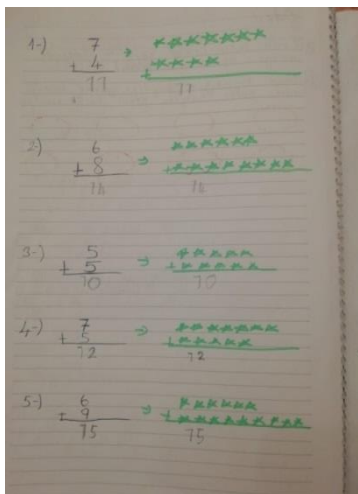 1-) 7 → ★★★★★★★
+ 4 ★★★★
11 11
2-) 6 → ★★★★★★
+ 8 + ★★★★★★★★
14 14
3-) 5 → ★★★★★
+ 5 + ★★★★★
10 10
4-) 7 → ★★★★★★★
+ 5 + ★★★★★
12 12
5-) 6 → ★★★★★★
+ 9 + ★★★★★★★★★
15 15